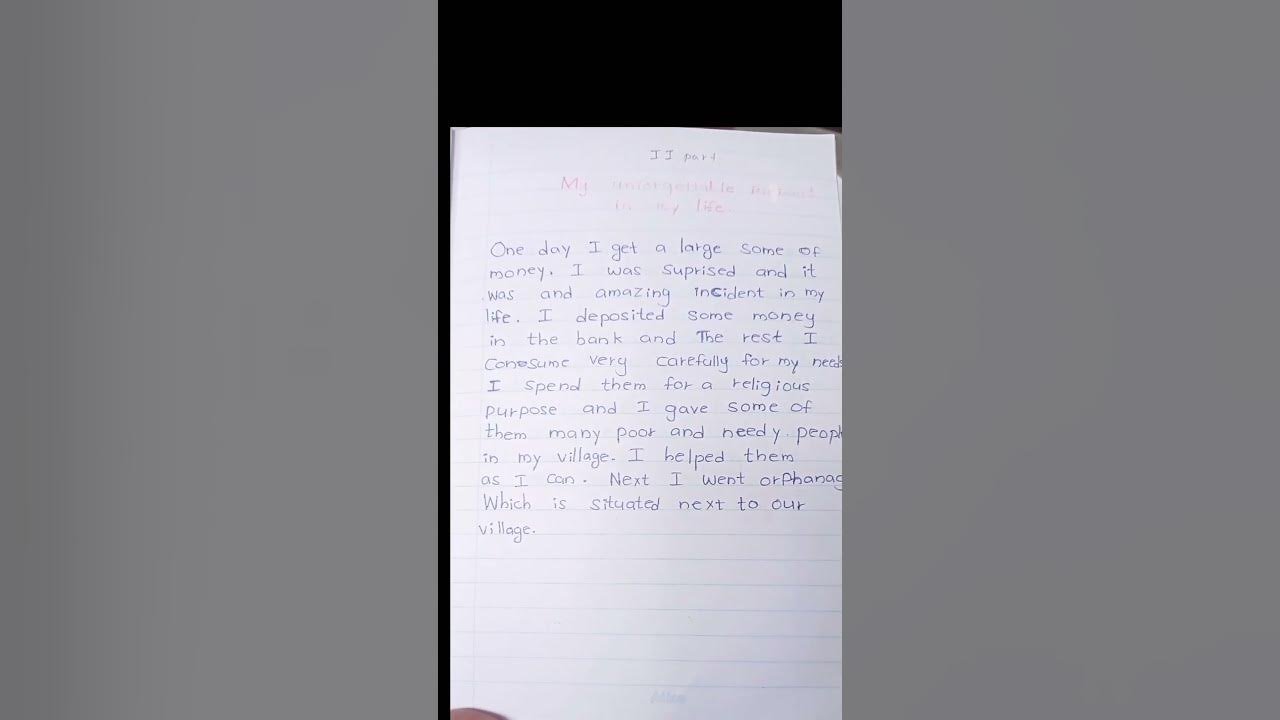 II part
My unforgettable moment
in my life.
One day I get a large some of
money. I was suprised and it
was and amazing incident in my
life. I deposited some money
in the bank and The rest I
conosume very carefully for my needs
I spend them for a religious
purpose and I gave some of
them many poor and needy. peopl
in my village. I helped them
as I can. Next I went orphanag
Which is situated next to our
village.